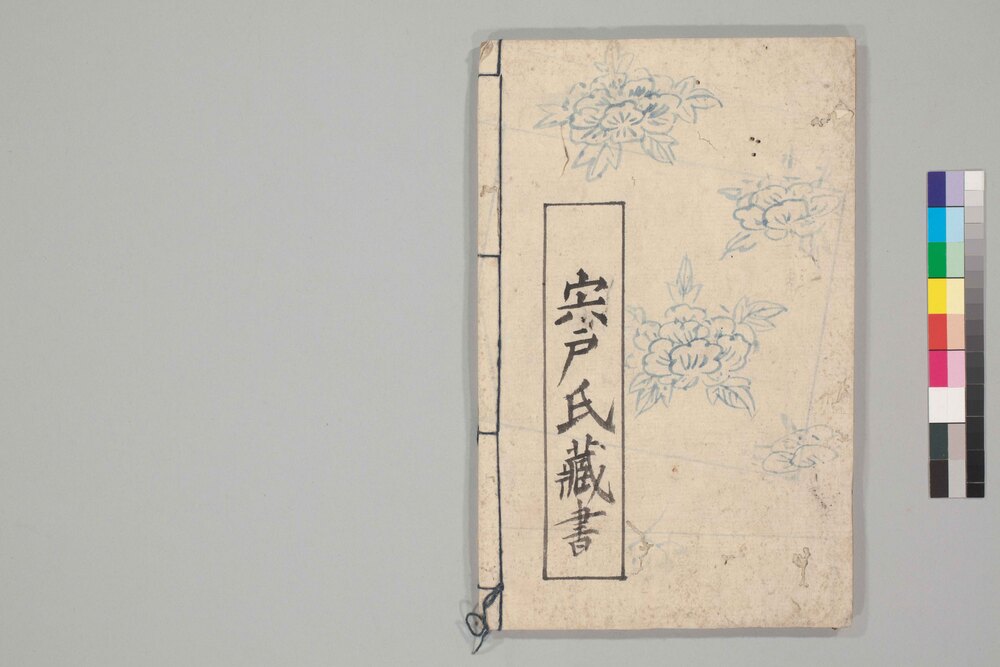 宍戸氏藏書